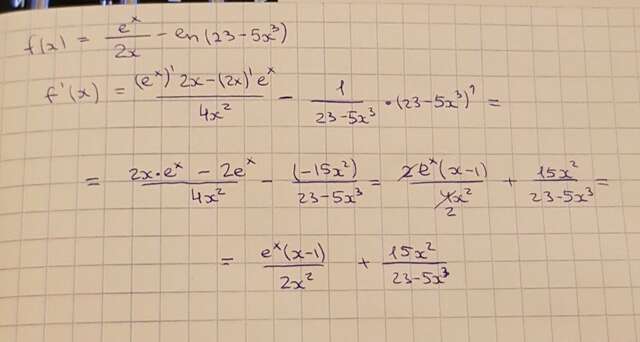 f(x) = e^x/2x - ln(23-5x³)
f'(x) = ((e^x)' 2x-(2x)' e^x)/4x² - 1/(23-5x³) • (23-5x³)' =
= (2x•e^x - 2e^x)/4x² - (-15x²)/(23-5x³) = 2e^x(x-1)/4x² 2 + 15x²/(23-5x³) =
= e^x(x-1)/2x² + 15x²/(23-5x³)